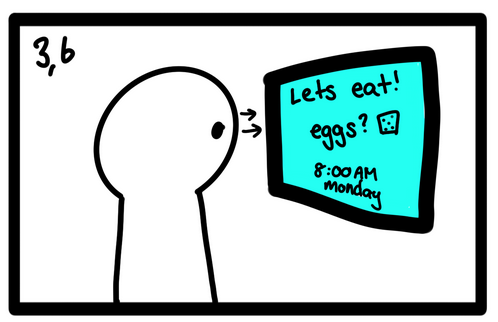 3,6
Lets eat!
eggs?
8:00AM
monday